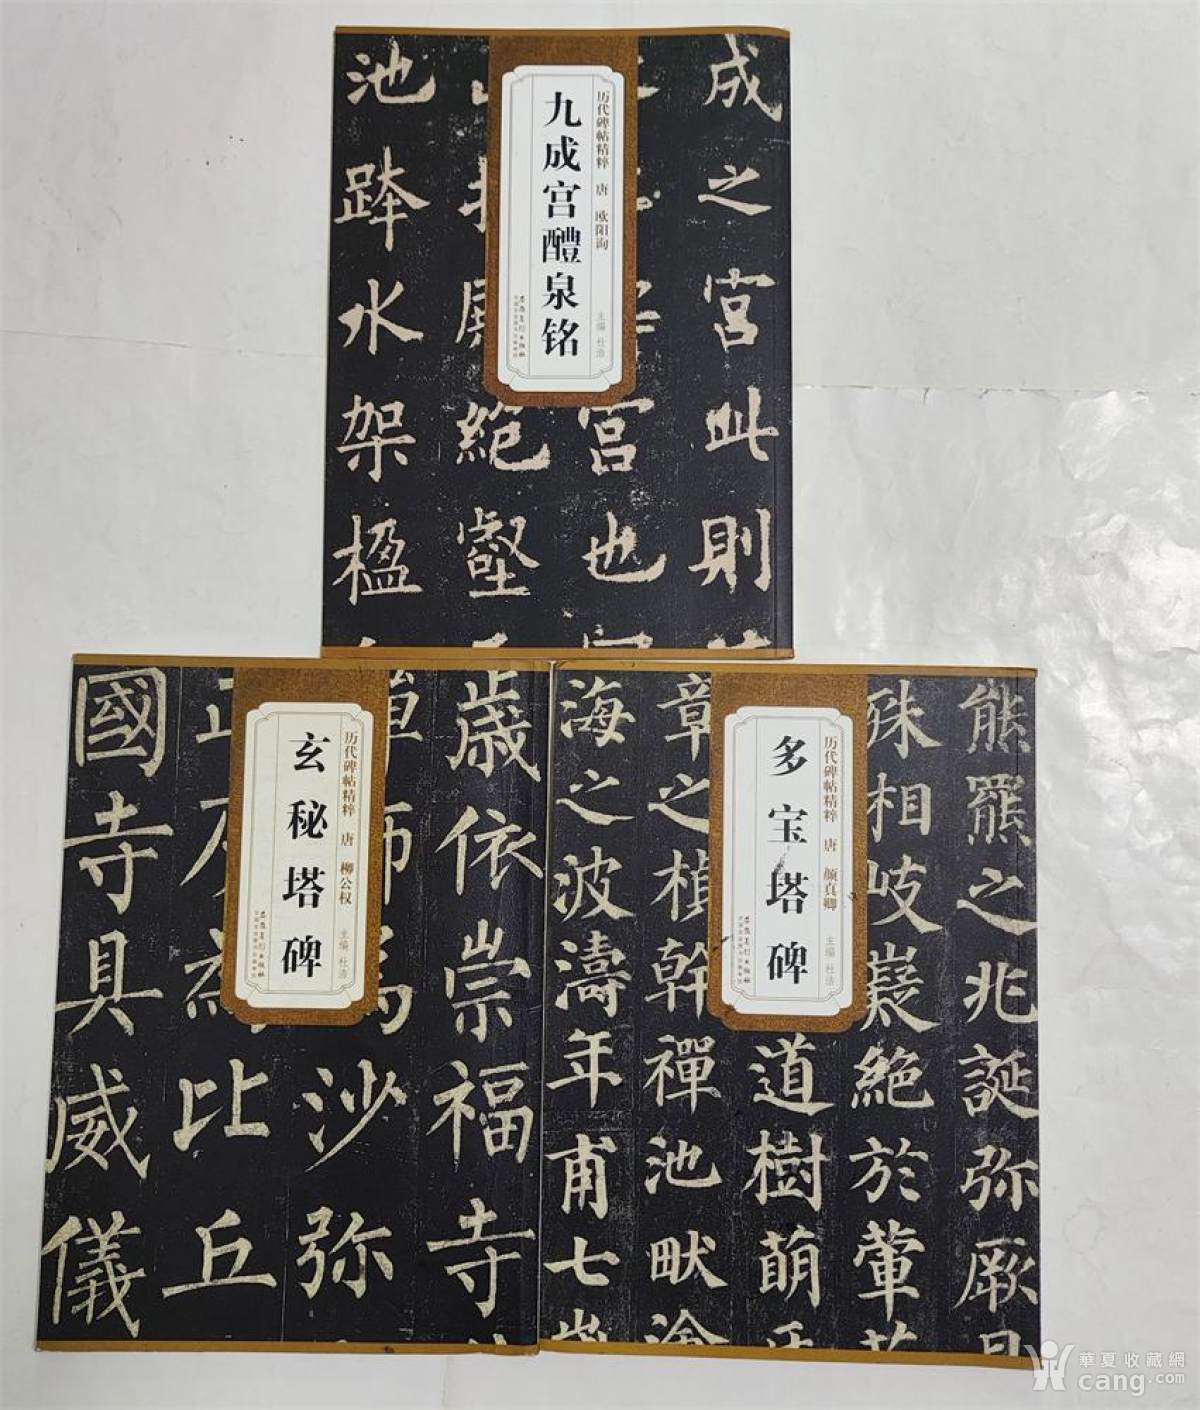 历代碑帖精粹 唐 欧阳询
九成宫醴泉铭
主编 杜浩
安徽美术出版社
成之宫此则
宫也
绝壑
池跨水架楹
历代碑帖精粹 唐 柳公权
玄秘塔碑
主编 杜浩
安徽美术出版社
歲依崇福寺
沙弥
比丘
國寺具威儀
历代碑帖精粹 唐 颜真卿
多宝塔碑
主编 杜浩
安徽美术出版社
熊羆之兆誕弥厥
殊相岐嶷絶於葷
道樹萌
章之楨幹禪池畎澮
海之波濤年甫七歲
華夏收藏網
cang.com